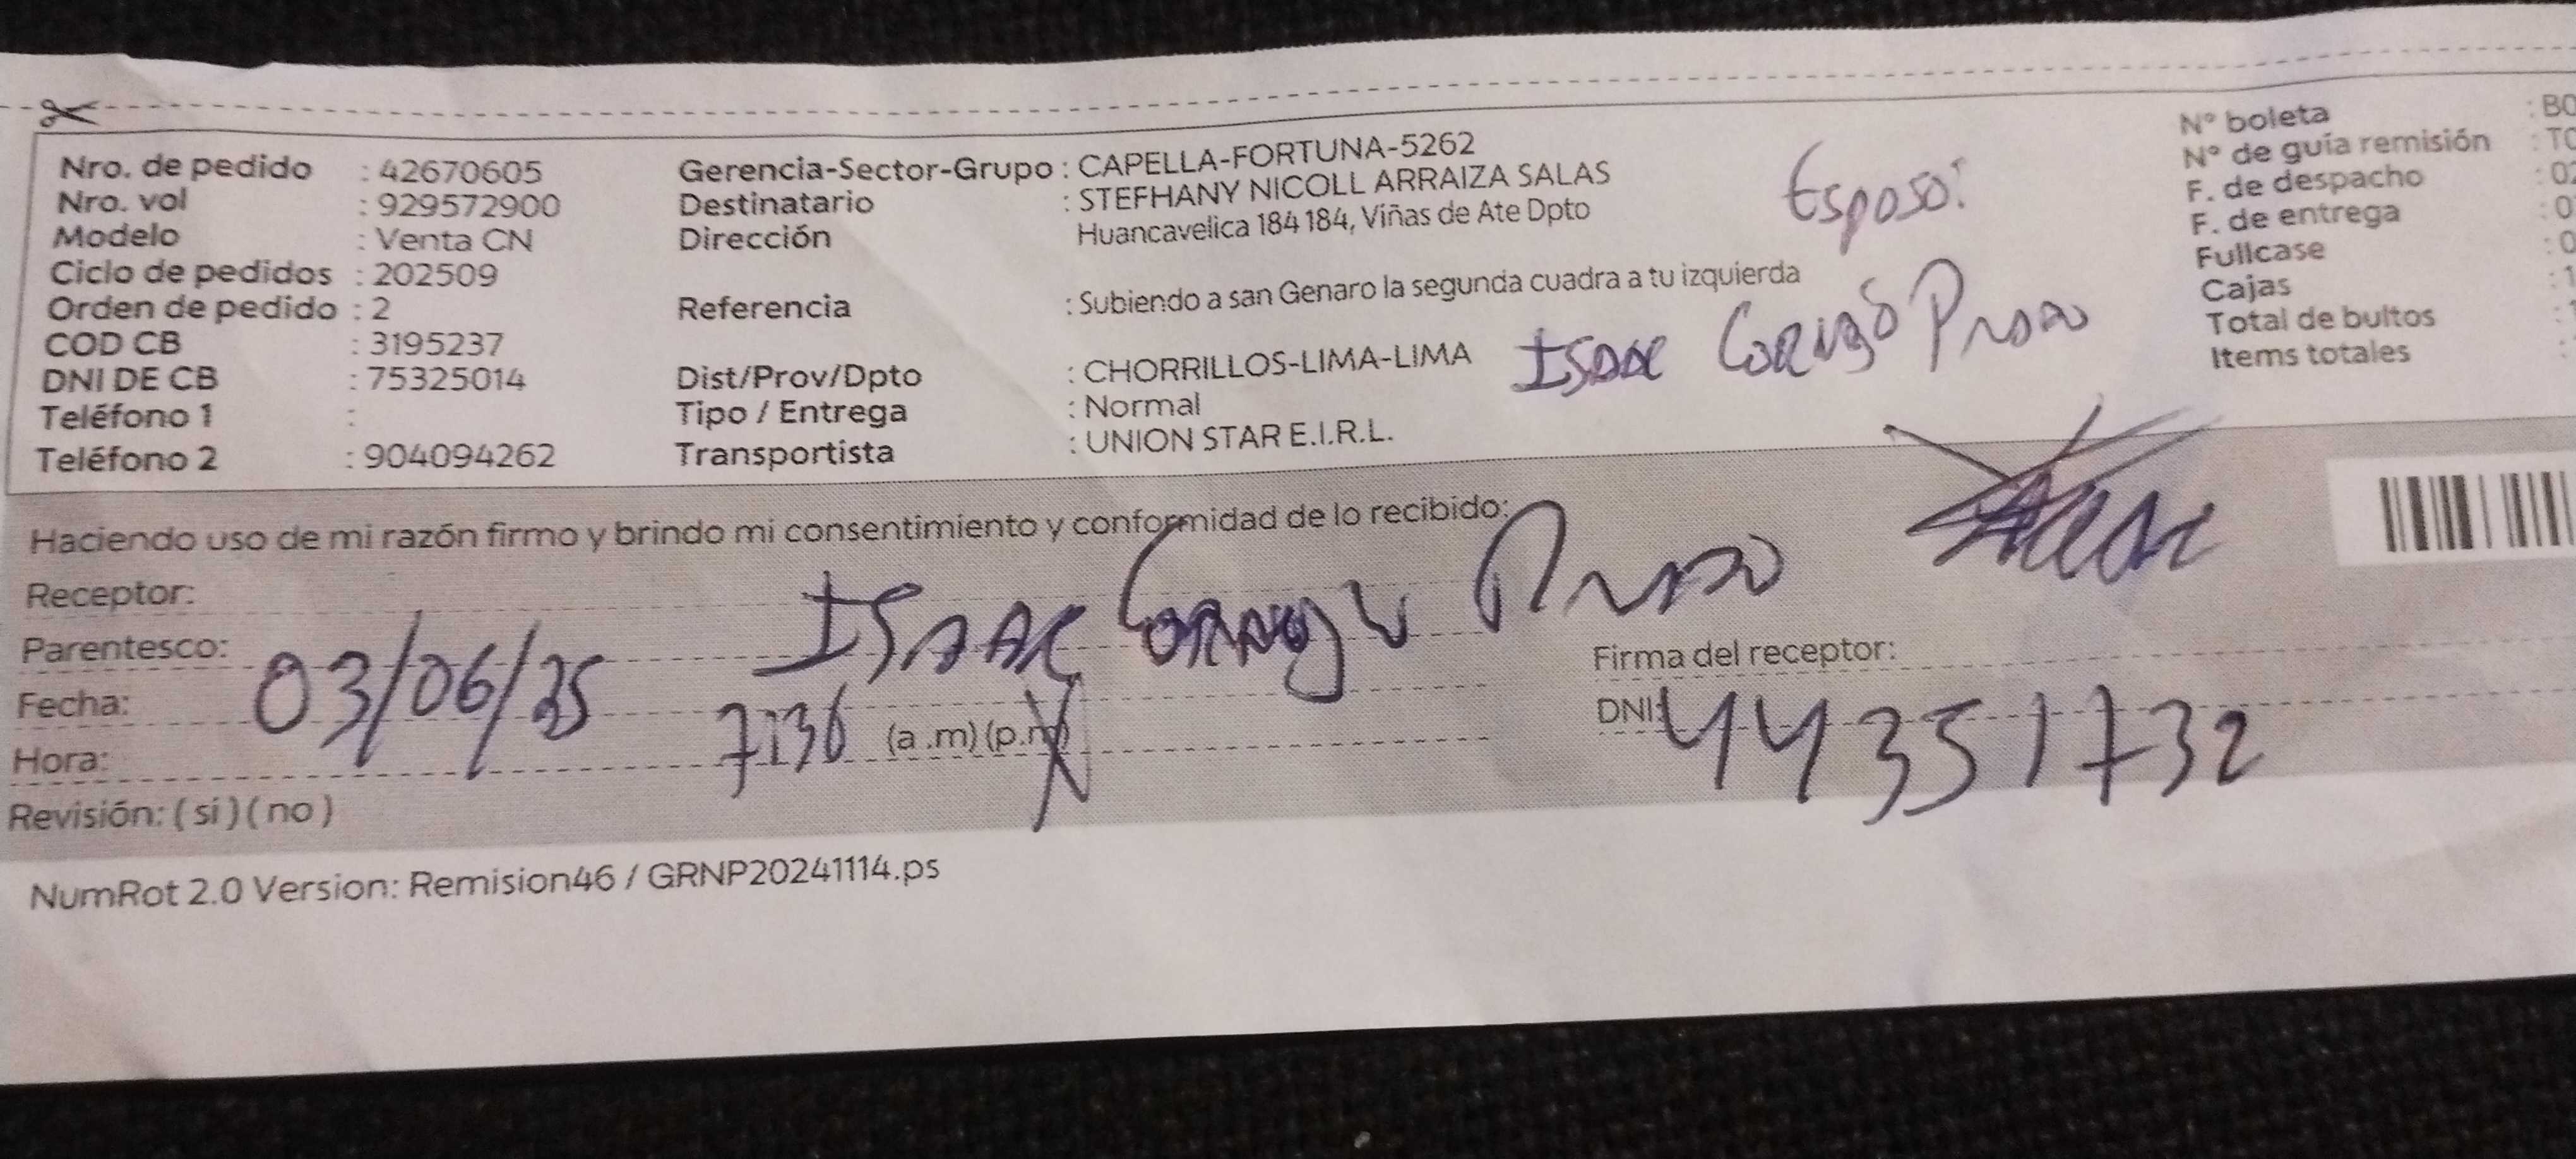 Nro. de pedido : 42670605
Nro. vol : 929572900
Modelo : Venta CN
Ciclo de pedidos : 202509
Orden de pedido : 2
COD CB : 3195237
DNI DE CB : 75325014
Teléfono 1 :
Teléfono 2 : 904094262
Gerencia-Sector-Grupo : CAPELLA-FORTUNA-5262
Destinatario : STEFHANY NICOLL ARRAIZA SALAS
Dirección Huancavelica 184 184, Viñas de Ate Dpto
Referencia : Subiendo a san Genaro la segunda cuadra a tu izquierda
Dist/Prov/Dpto : CHORRILLOS-LIMA-LIMA
Tipo / Entrega : Normal
Transportista : UNION STAR E.I.R.L.
Esposo:
ISAAC
N° boleta : B0
N° de guía remisión : T0
F. de despacho : 02
F. de entrega : 0
Fullcase : 0
Cajas : 1
Total de bultos :
Items totales :
Haciendo uso de mi razón firmo y brindo mi consentimiento y conformidad de lo recibido:
Receptor: ISAAC
Parentesco:
Fecha: 03/06/25
Hora: 7:36 (a .m) (p.m)
Revisión: ( si ) ( no )
Firma del receptor:
DNI: 44351732
NumRot 2.0 Version: Remision46 / GRNP20241114.ps